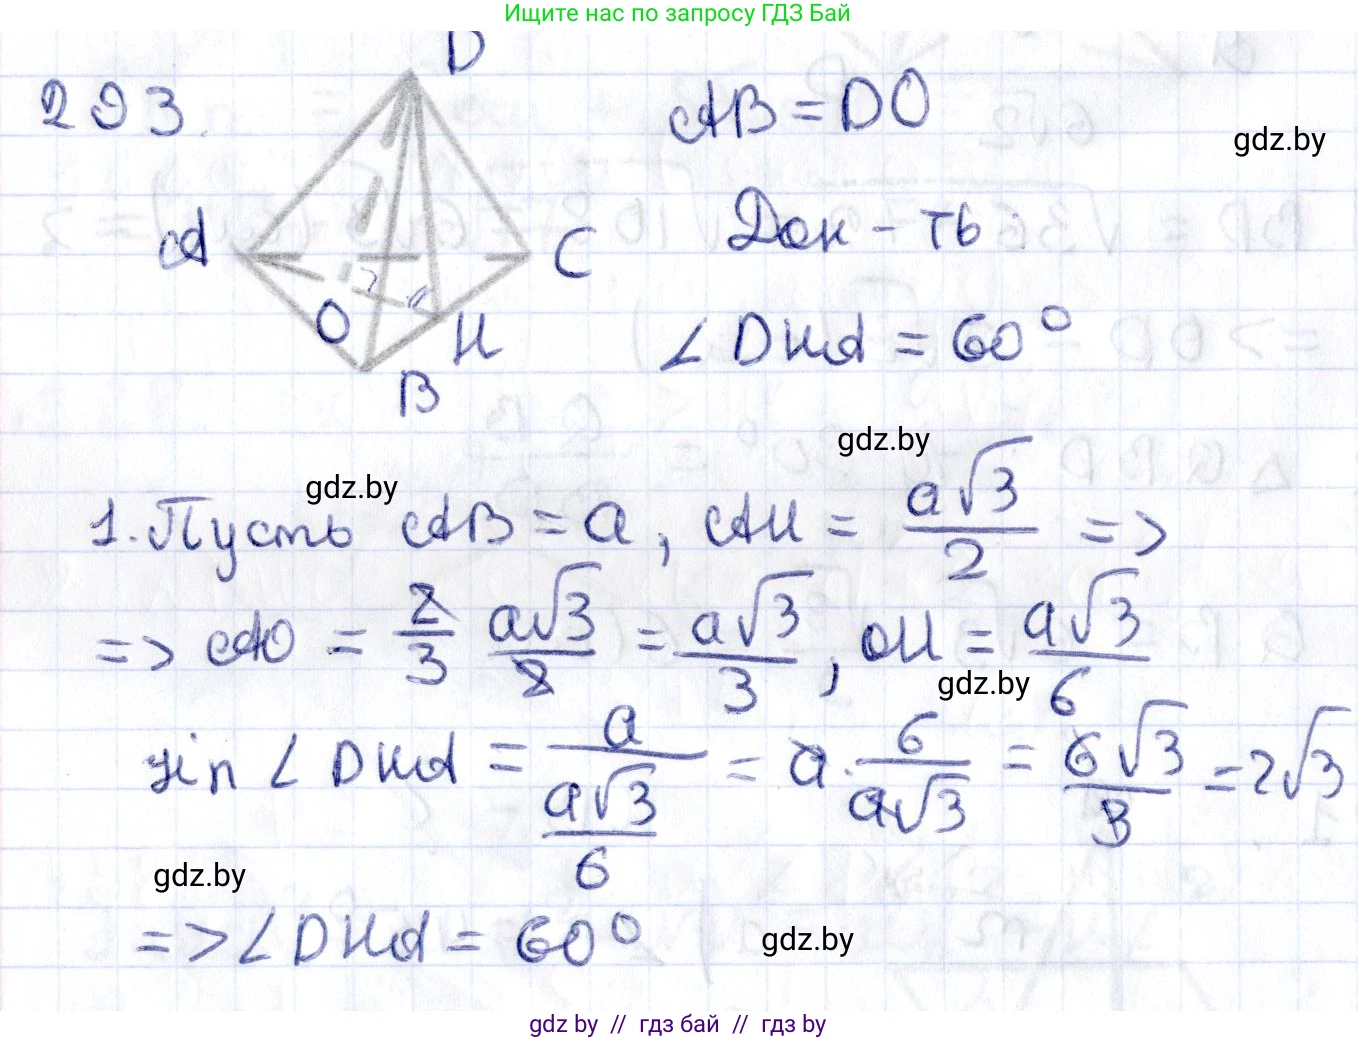 Ищите нас по запросу ГДЗ Бай
293.
D
AB = DO
gdz.by
A
C
Док-ть:
O
H
∠DHA = 60°
B
gdz.by
gdz.by
1. Пусть AB = a, AH = a√3/2 =>
=> AO = 2/3 a√3/2 = a√3/3, OH = a√3/6
gdz.by
sin ∠DHA = a/(a√3/6) = a · 6/(a√3) = 6√3/3 = 2√3
gdz.by
=> ∠DHA = 60°
gdz.by
gdz.by // гдз бай // гдз by